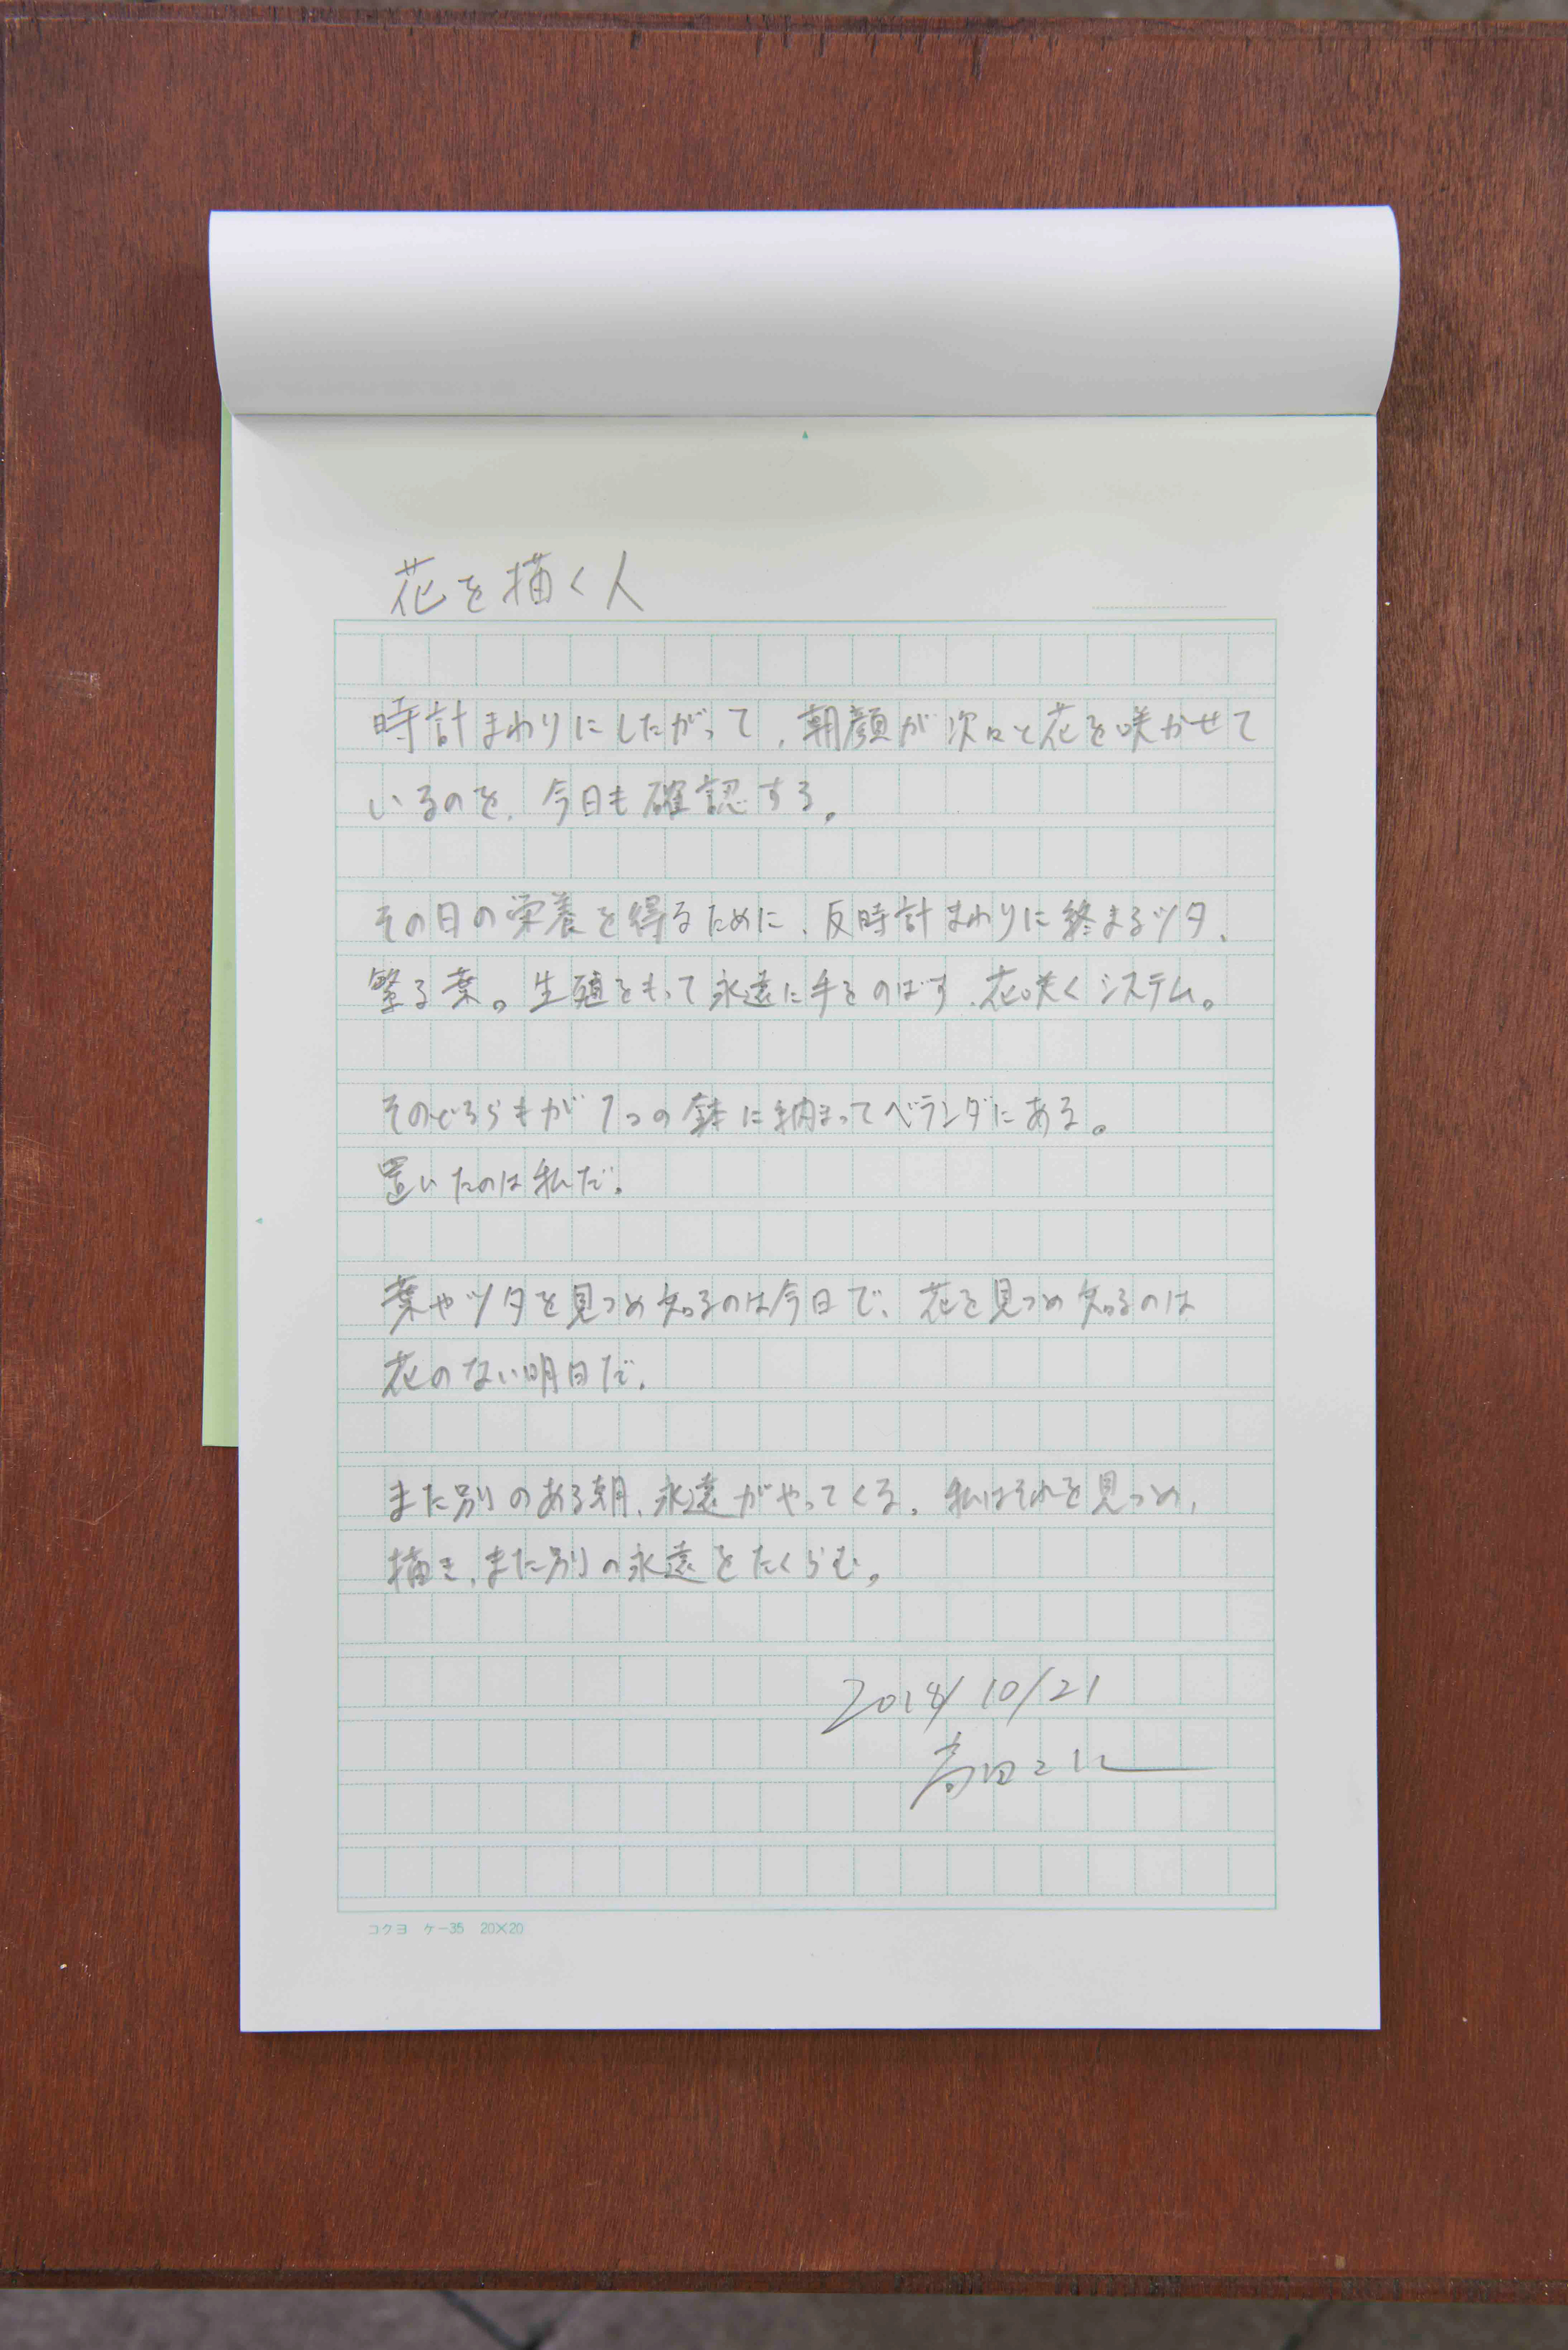 花を描く人
時計まわりにしたがって、朝顔が次々と花を咲かせて
いるのを、今日も確認する。
その日の栄養を得るために、反時計まわりに終まるツタ、
繁る葉。生殖をもって永遠に手をのばす、花咲くシステム。
そのどちらもが1つの鉢に納まってベランダにある。
置いたのは私だ。
葉やツタを見つめ知るのは今日で、花を見つめ知るのは
花のない明日だ。
また別のある朝、永遠がやってくる。私はそれを見つめ、
描き、また別の永遠をたくらむ。
2018/10/21
コクヨ ケー35 20×20